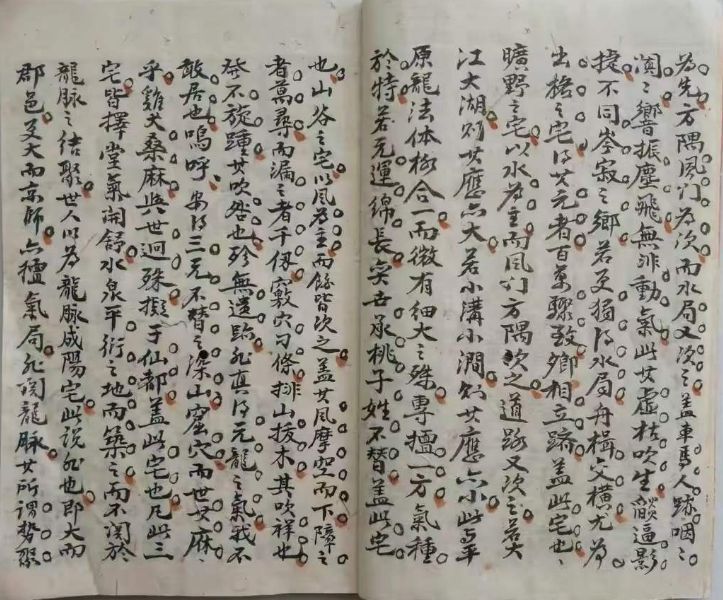 為先方隅風门為次而水局又次之盖車馬人跡咽〻
闐〻響振塵飛無非動氣此其虛枯吹生嚴逼影
捷不同岑寂之鄉若更獨得水局舟楫交横尤為
出格之宅得其元者百萬驟致鄉相立躋盖此宅也〻
曠野之宅以水為主而風门方隅次之道路又次之若大
江大湖則其應亦大若小溝小澗則其應亦小此与平
原龍法体格合一而微有細大之殊專擅一方氣種
於特若元運綿長奕世承桃子姓不替盖此宅
也山谷之宅以風為主而餘皆次之盖其風摩空而下障之
者萬尋而漏之者千仞竅穴勻條排山拔木其吹祥也
發不旋踵其吹咎也殄無遺跡非真得元龍之氣我不
敢居也嗚呼安得三元不替之深山窟穴而世其麻〻
乎雞犬桑麻與世迥殊擬于仙都盖此宅也凡此三
宅皆擇堂氣開舒水泉平衍之地而築之而不関於
龍脉之结聚世人以為龍脉咸陽宅此説非也即大而
郡邑更大而京師亦擅氣局非関龍脉其所謂勢聚